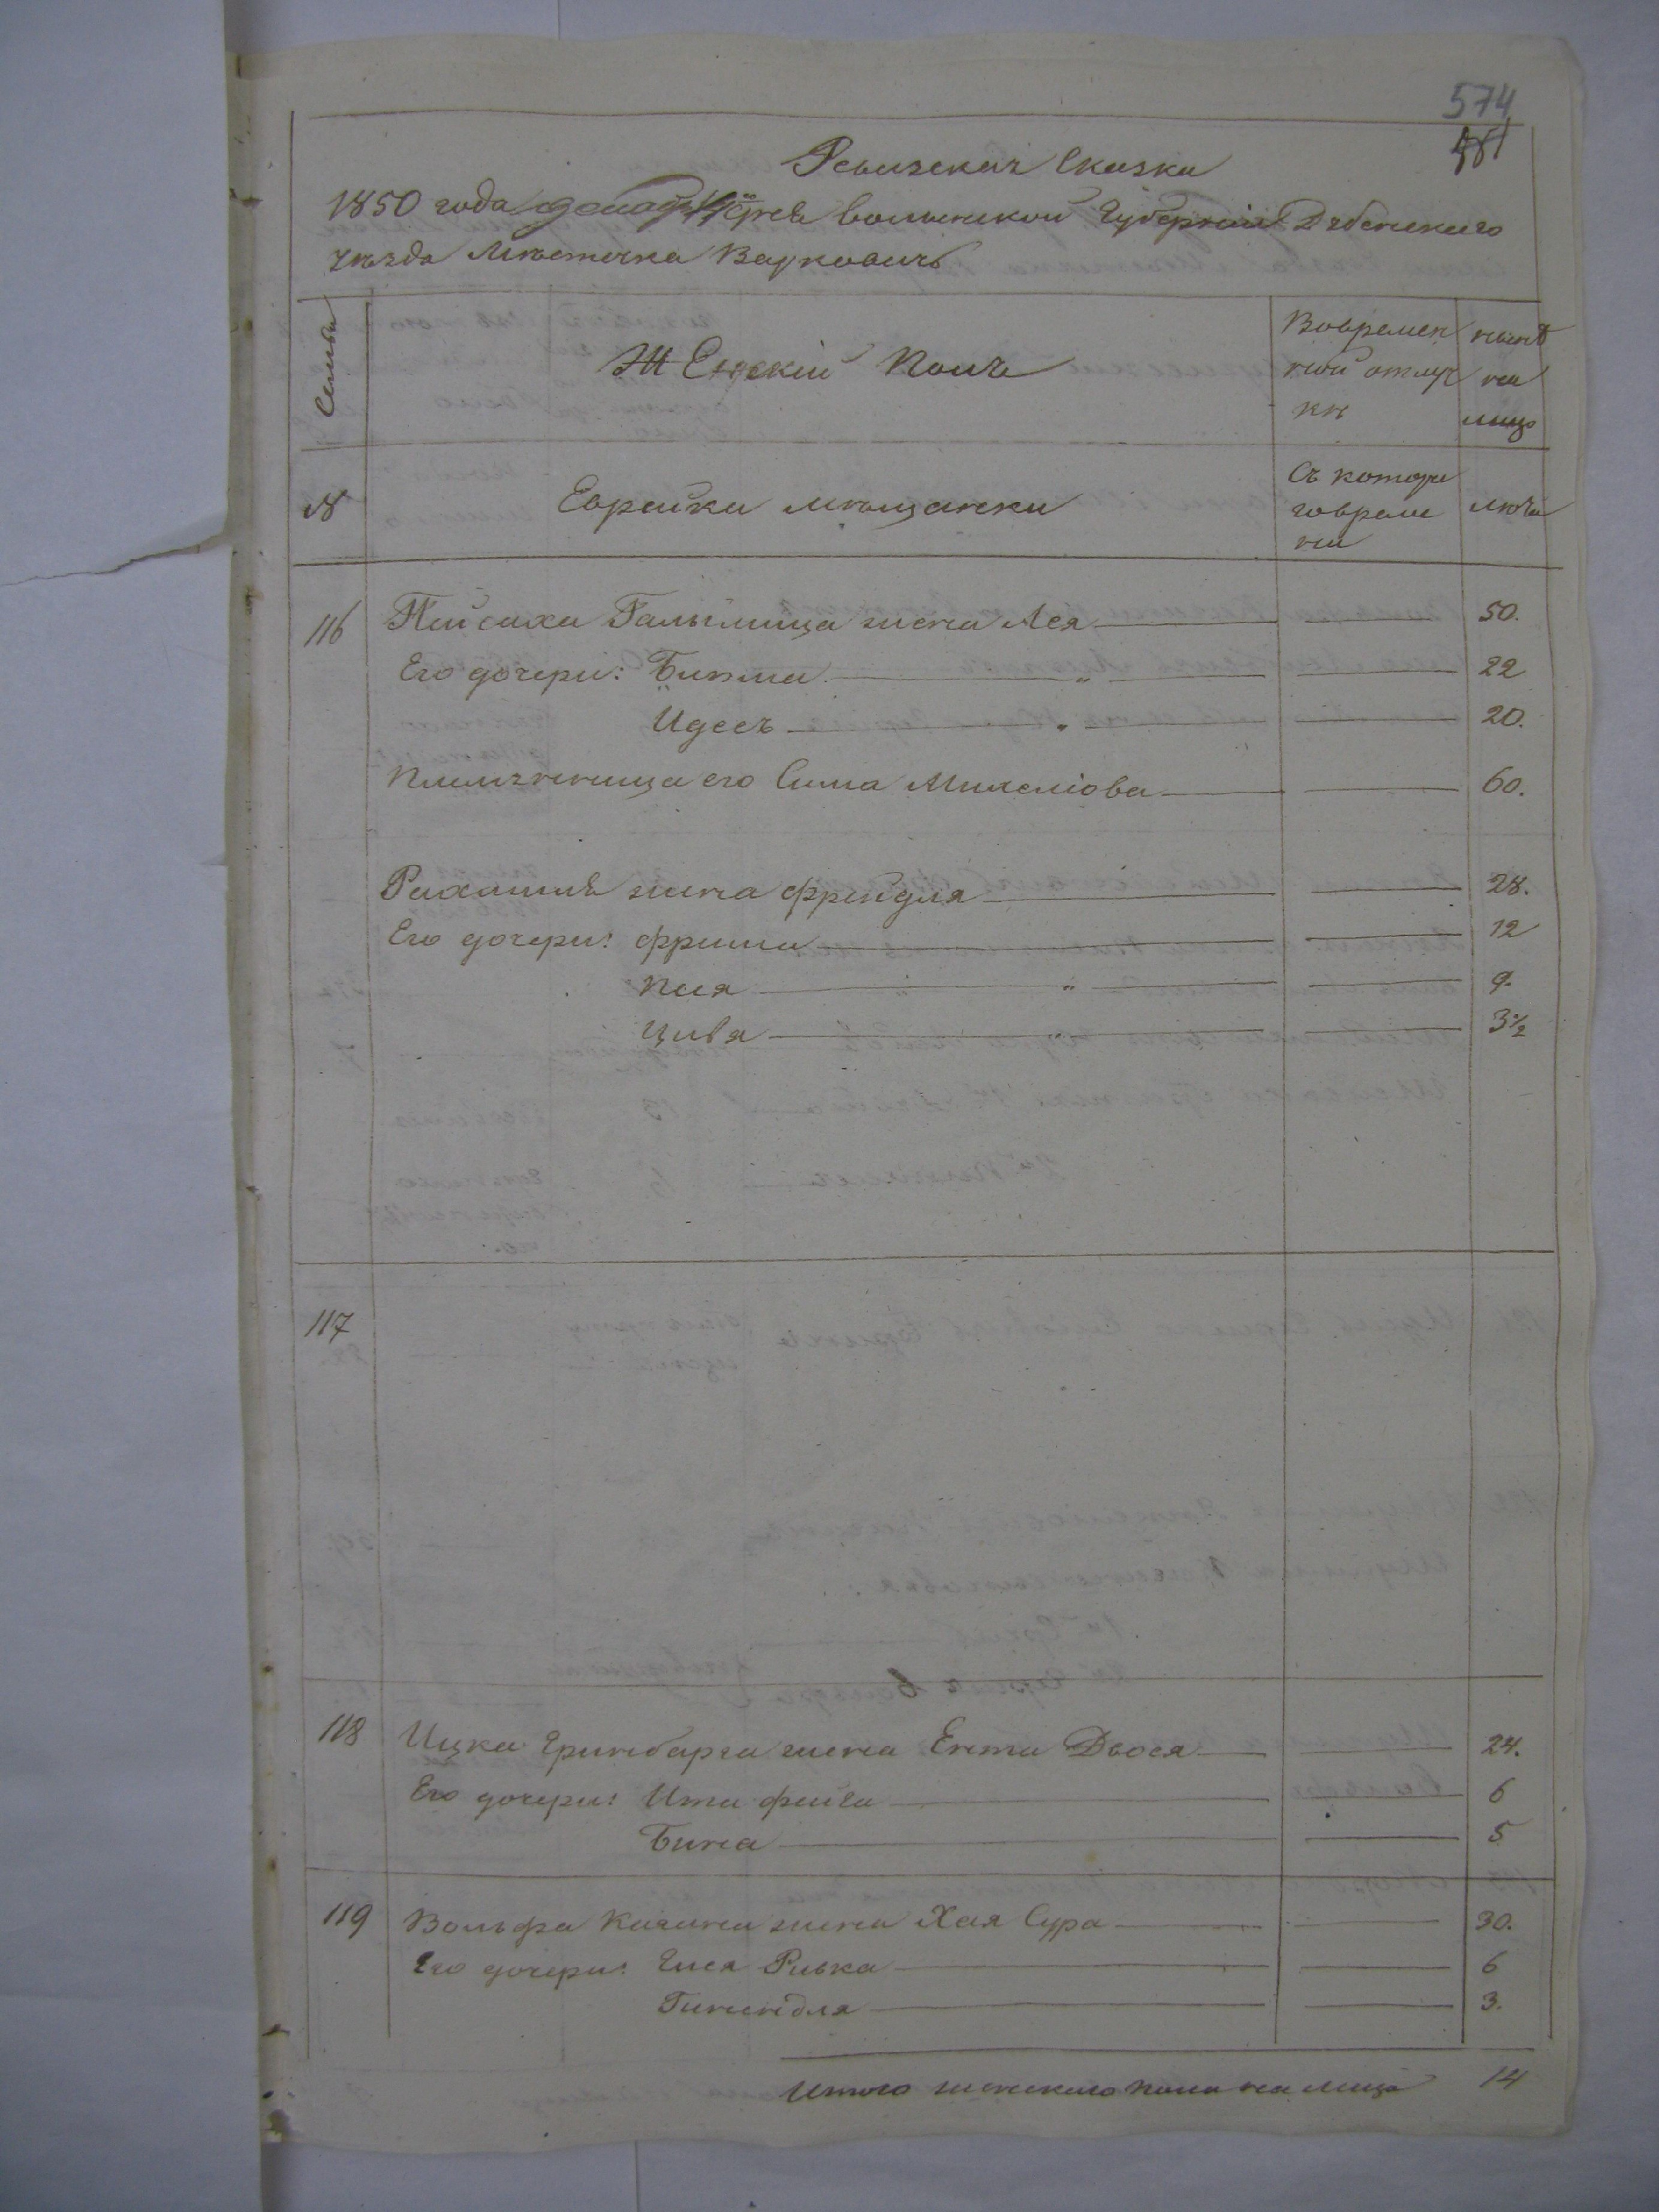 574
Ревизская Сказка
1850 года дня волынской Губернии Дубенскаго
уезда Местечка Варковичъ
Семьи
Женскій Полъ
Вовремен
ной отлуч
ке
ныне
на
лицо
№
Еврейки мещанки
Съ котора
говреме
ни
лета
116 Пейсаха Гальмица жена Лея 50.
Его дочери: Битма " 22
Идесъ " 20.
племянница его Сима Михеліова 60.
Рахмиля жена Фрейдля 28.
Его дочери: Фрима 12
Пея " 9.
Цивя " 3½
117
118 Ицка Гринбарга жена Ента Двося 24.
Его дочери: Ита Фейга 6
Бина 5
119 Вольфа Кагана жена Хая Сура 30.
Его дочери: Гися Ривка 6
Гинендля 3.
Итого женскаго пола на лицо 14